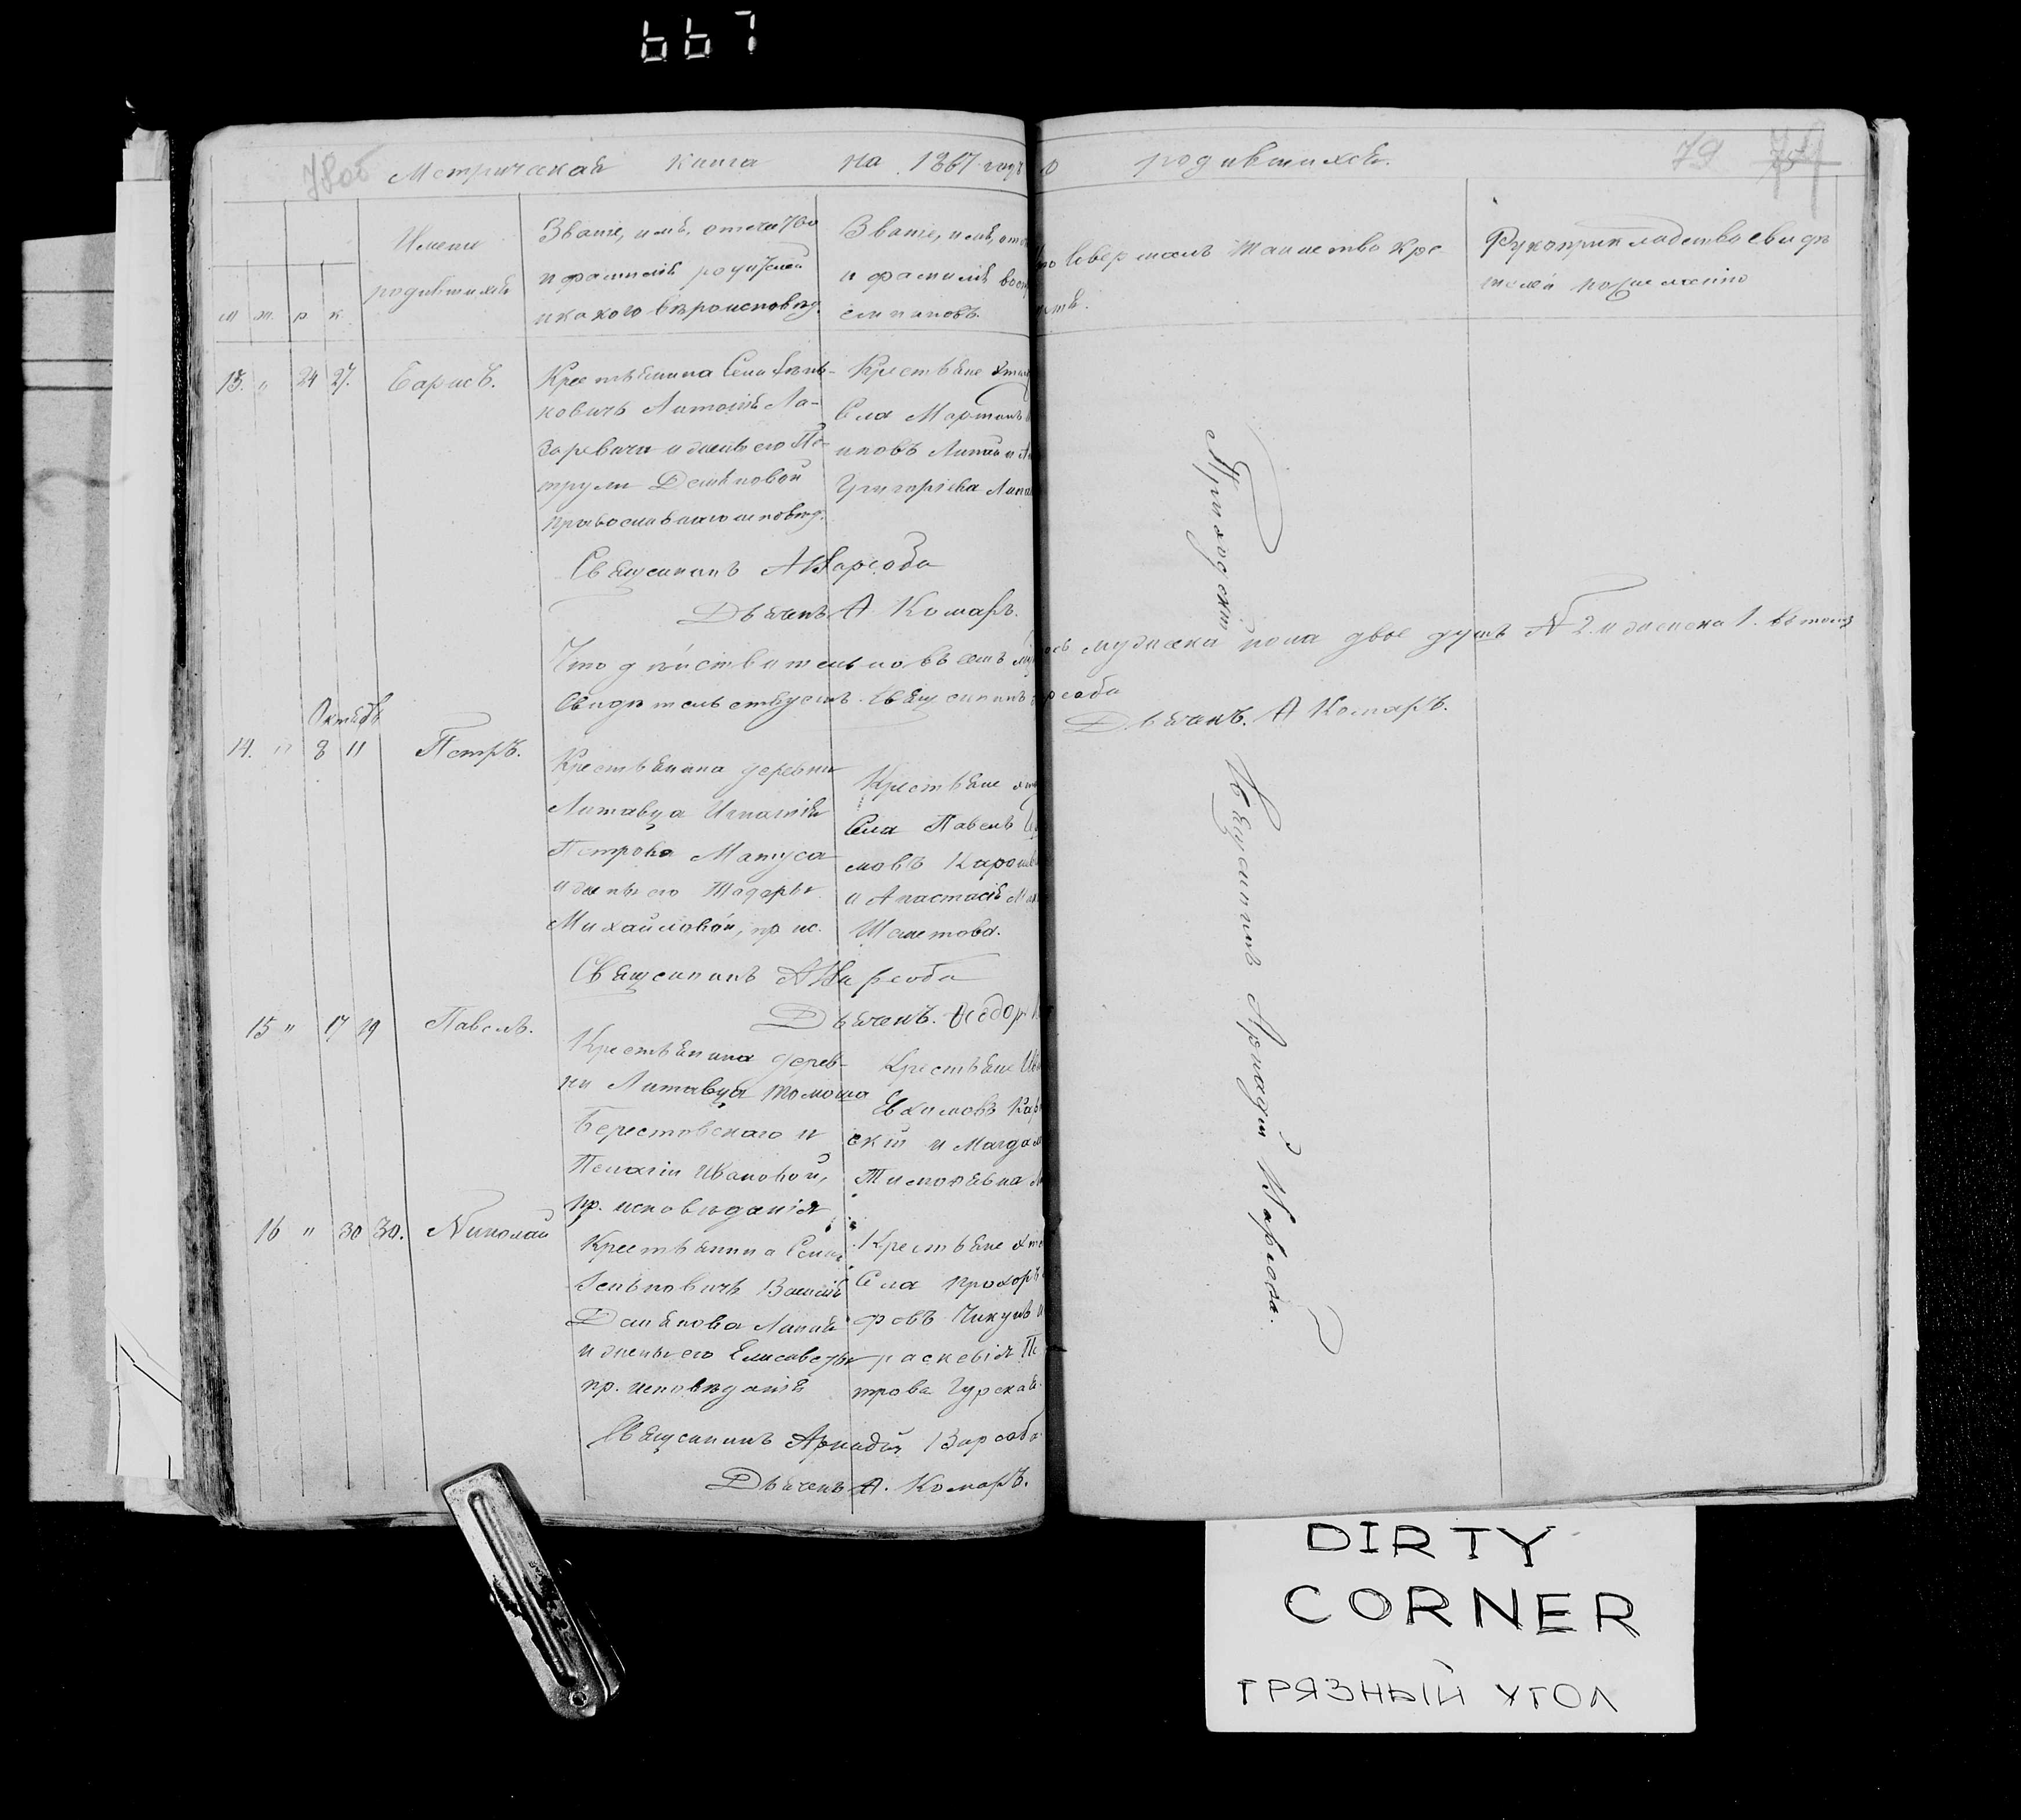 667
78об Метрическая книга на 1867 годъ о родившихся. 79
Имена
родившихся
м ж. р к.
Званіе, имя, отчество
и фамилія родителей
и какого вѣроисповѣд.
Званіе, имя, отч
и фамилія восп
емниковъ.
то совершалъ таинство кре
Рукоприкладство свидѣ
телей по желанію
13. " 24 27. Барисъ.
Крестьянина Села
ковичъ Антонія Ла-
заревича и жены его Пе-
трули Демяновой
православнаго исповѣд.
Крестьяне
Села Мартинъ
иновъ Липай и
Григоріева
Священникъ А Варсоба
Дьячекъ А Комаръ.
Что дѣйствительно въ семъ
ось мужеска пола двое душъ № 2 и женска 1. въ томъ
Свидѣтельствуетъ Священникъ
рсоба
Дьячекъ. А Комаръ.
Октябь
14. " 8 11 Петръ.
Крестьянина деревни
Литавца Игнатія
Петрова Матуса
и жены его Тадоры
Михайловой, пр ис.
Крестьяне
Села Павелъ
мовъ
и Анастасія
Шаметова.
Священникъ А Варсоба
Дьячекъ. Ѳеодор
15 " 17 19 Павелъ.
Крестьянина дерев-
ни Литавца Томаша
Берестовскаго и
Пелагіи Ивановой,
пр. исповѣданія
Крестьяне
Евхимовъ
скій и Магдал
Тимоѳевна
16 " 30 30. Николай
Крестьянина Села
Зеньковичъ Василія
Демянова Липая
и жены его Елисаветы
пр. исповѣданія
Крестьяне
Села Прохоръ
ровъ Чикунъ и
раскевія Пе
трова Гурская.
Священникъ Аркадій Варсоба
Дьячекъ А. Комаръ.
Приходскій
Священникъ Аркадій Варсоба.
DIRTY
CORNER
ГРЯЗНЫЙ УГОЛ